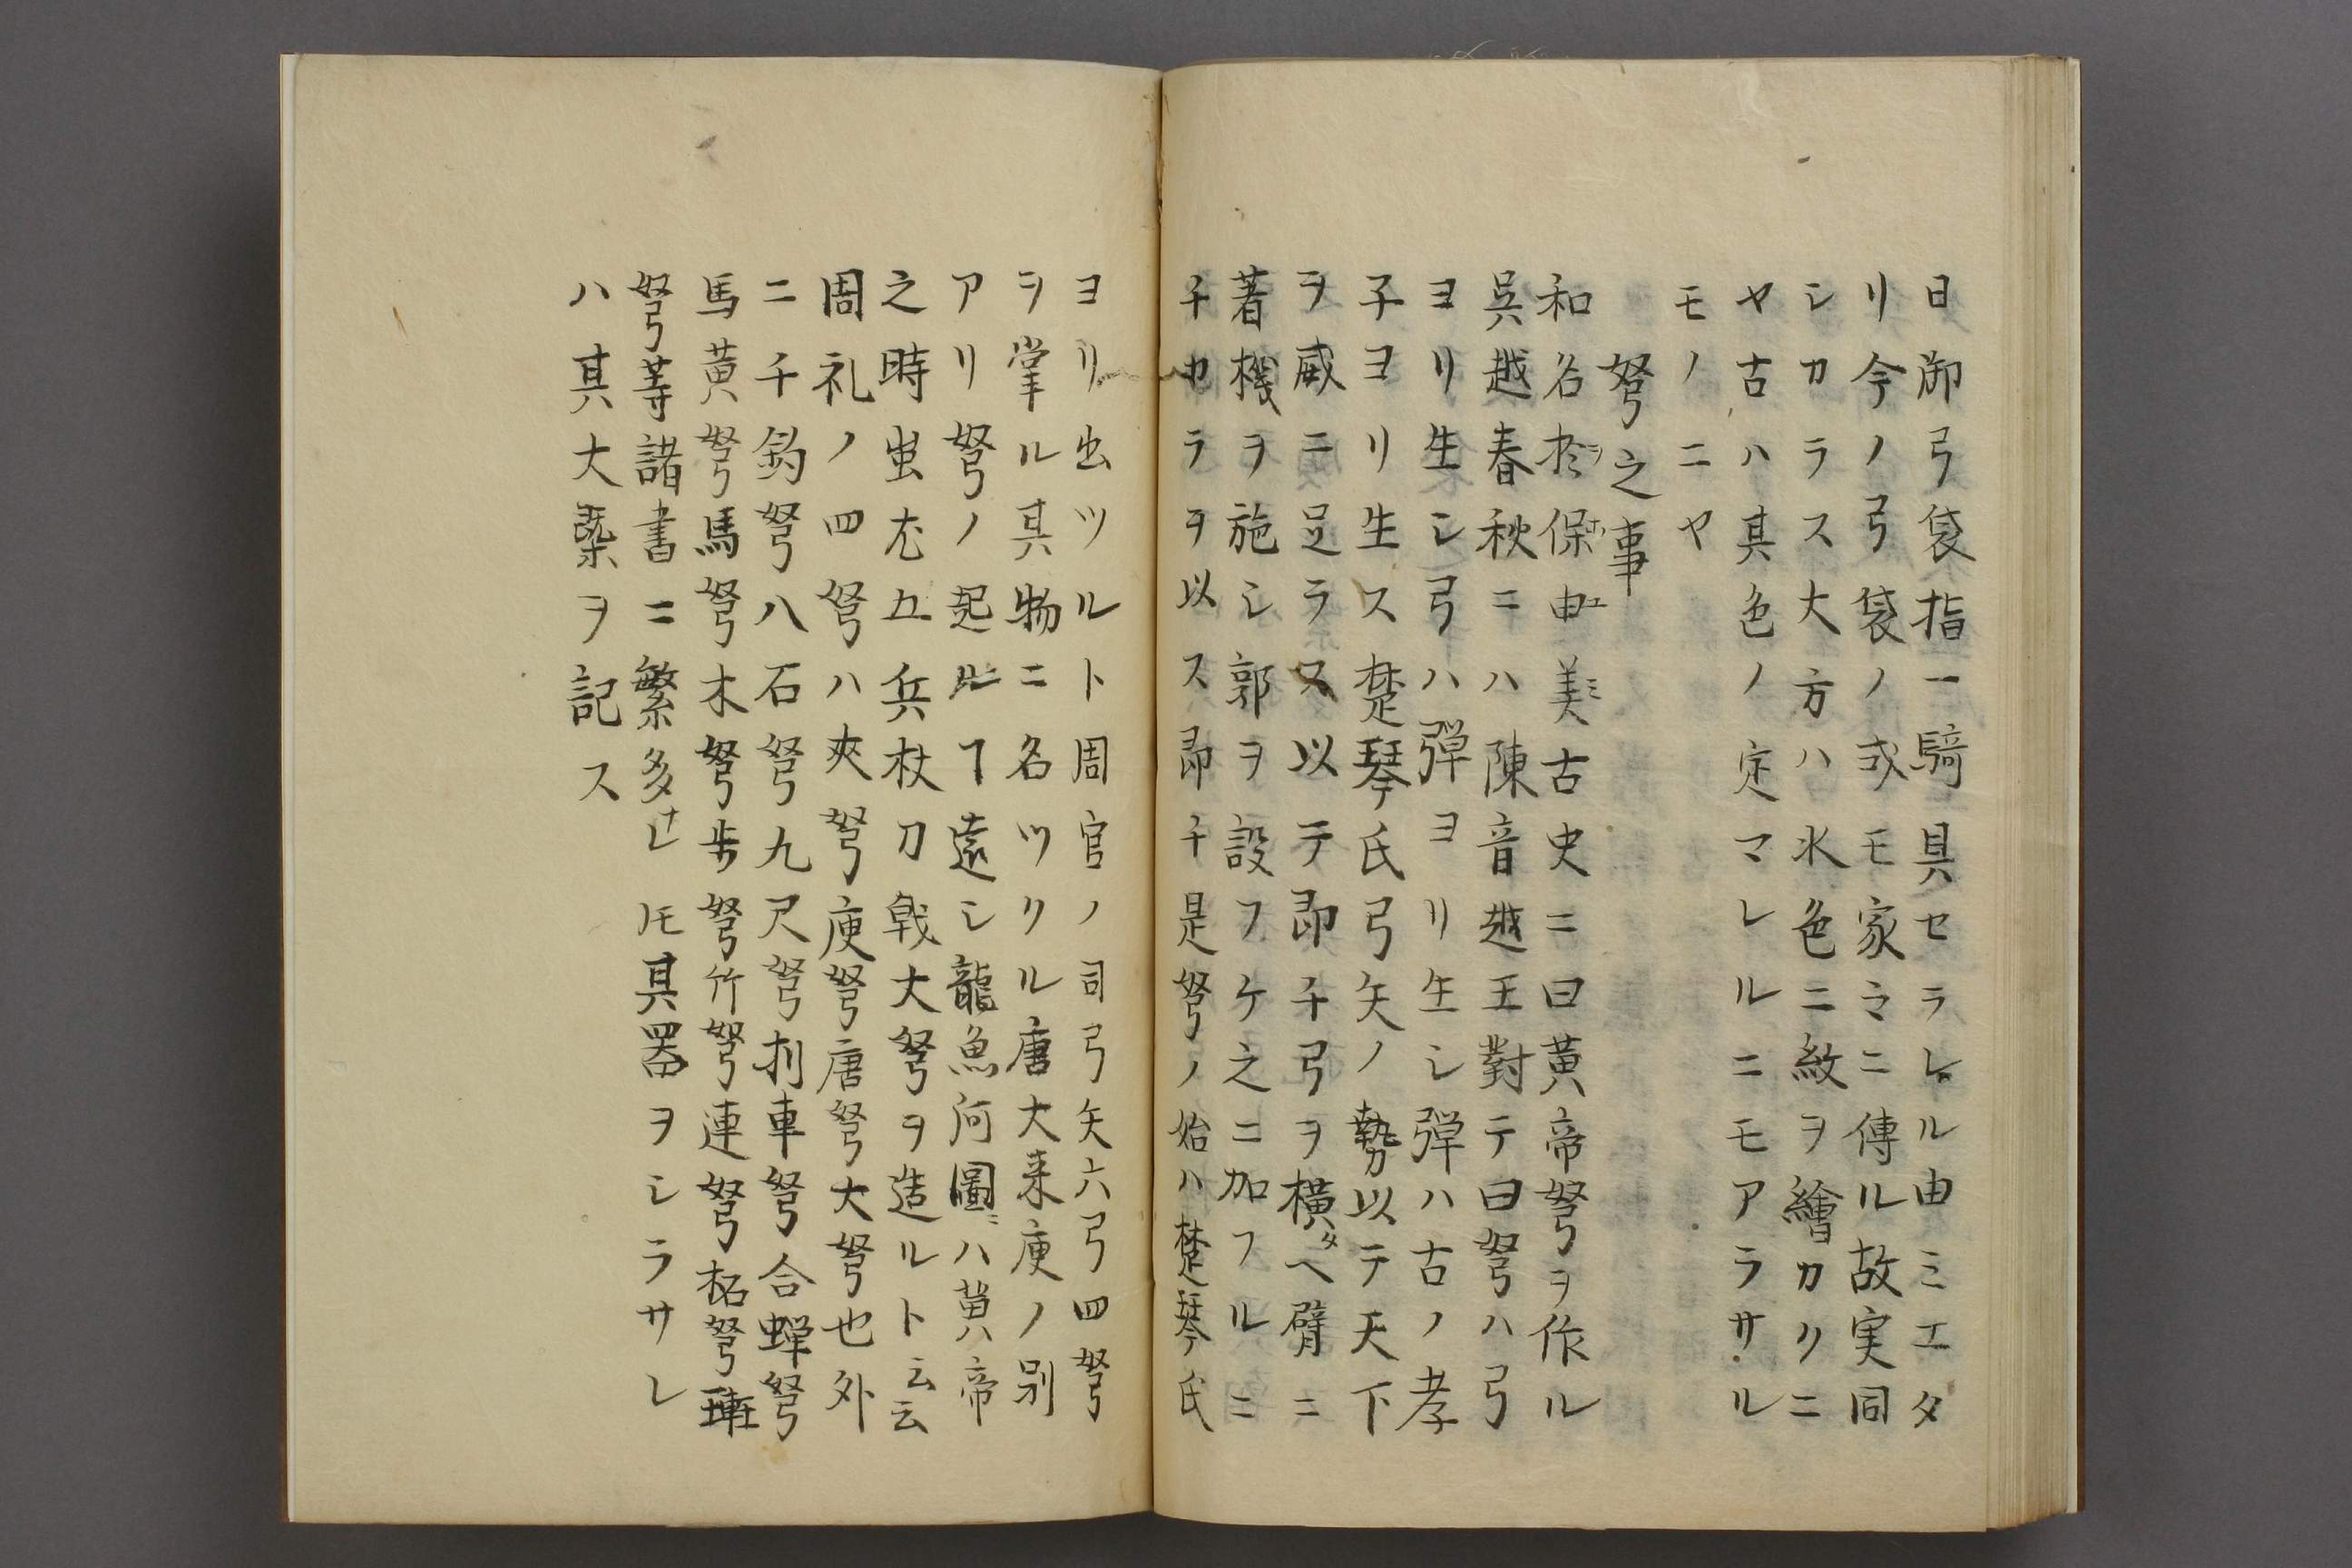 日御弓袋指一騎具セラレル由ミエタ
リ今ノ弓袋ノ或モ家〻ニ傳ル故実同
シカラス大方ハ水色ニ紋ヲ繪カクニ
ヤ古ハ其色ノ定マレルニモアラサル
モノニヤ
弩之事
和名於保由美古史ニ曰黄帝弩ヲ作ル
呉越春秋ニハ陳音越王對テ曰弩ハ弓
ヨリ生シ弓ハ弾ヨリ生シ弾ハ古ノ孝
子ヨリ生ス楚琴氏弓矢ノ勢以テ天下
ヲ威ニ足ラス以テ即チ弓ヲ横タヘ臂ニ
著機ヲ施シ郭ヲ設フケ之ニ加フルニ
チカラヲ以ス即チ是弩ノ始ハ楚琴氏
ヨリ出ツルト周官ノ司弓矢六弓四弩
ヲ掌ル其物ニ名ツクル唐大来庾ノ別
アリ弩ノ起ルヿ遠シ龍魚河圖ニハ黄帝
之時蚩尤五兵杖刀戟大弩ヲ造ルト云云
周礼ノ四弩ハ夾弩庾弩唐弩大弩也外
ニ千釣弩八石弩九尺弩車弩合蝉弩
馬黄弩馬弩木弩歩弩竹弩連弩柘弩
弩等諸書ニ繁多ナレ𪜈其器ヲシラサレ
ハ其大槩ヲ記ス